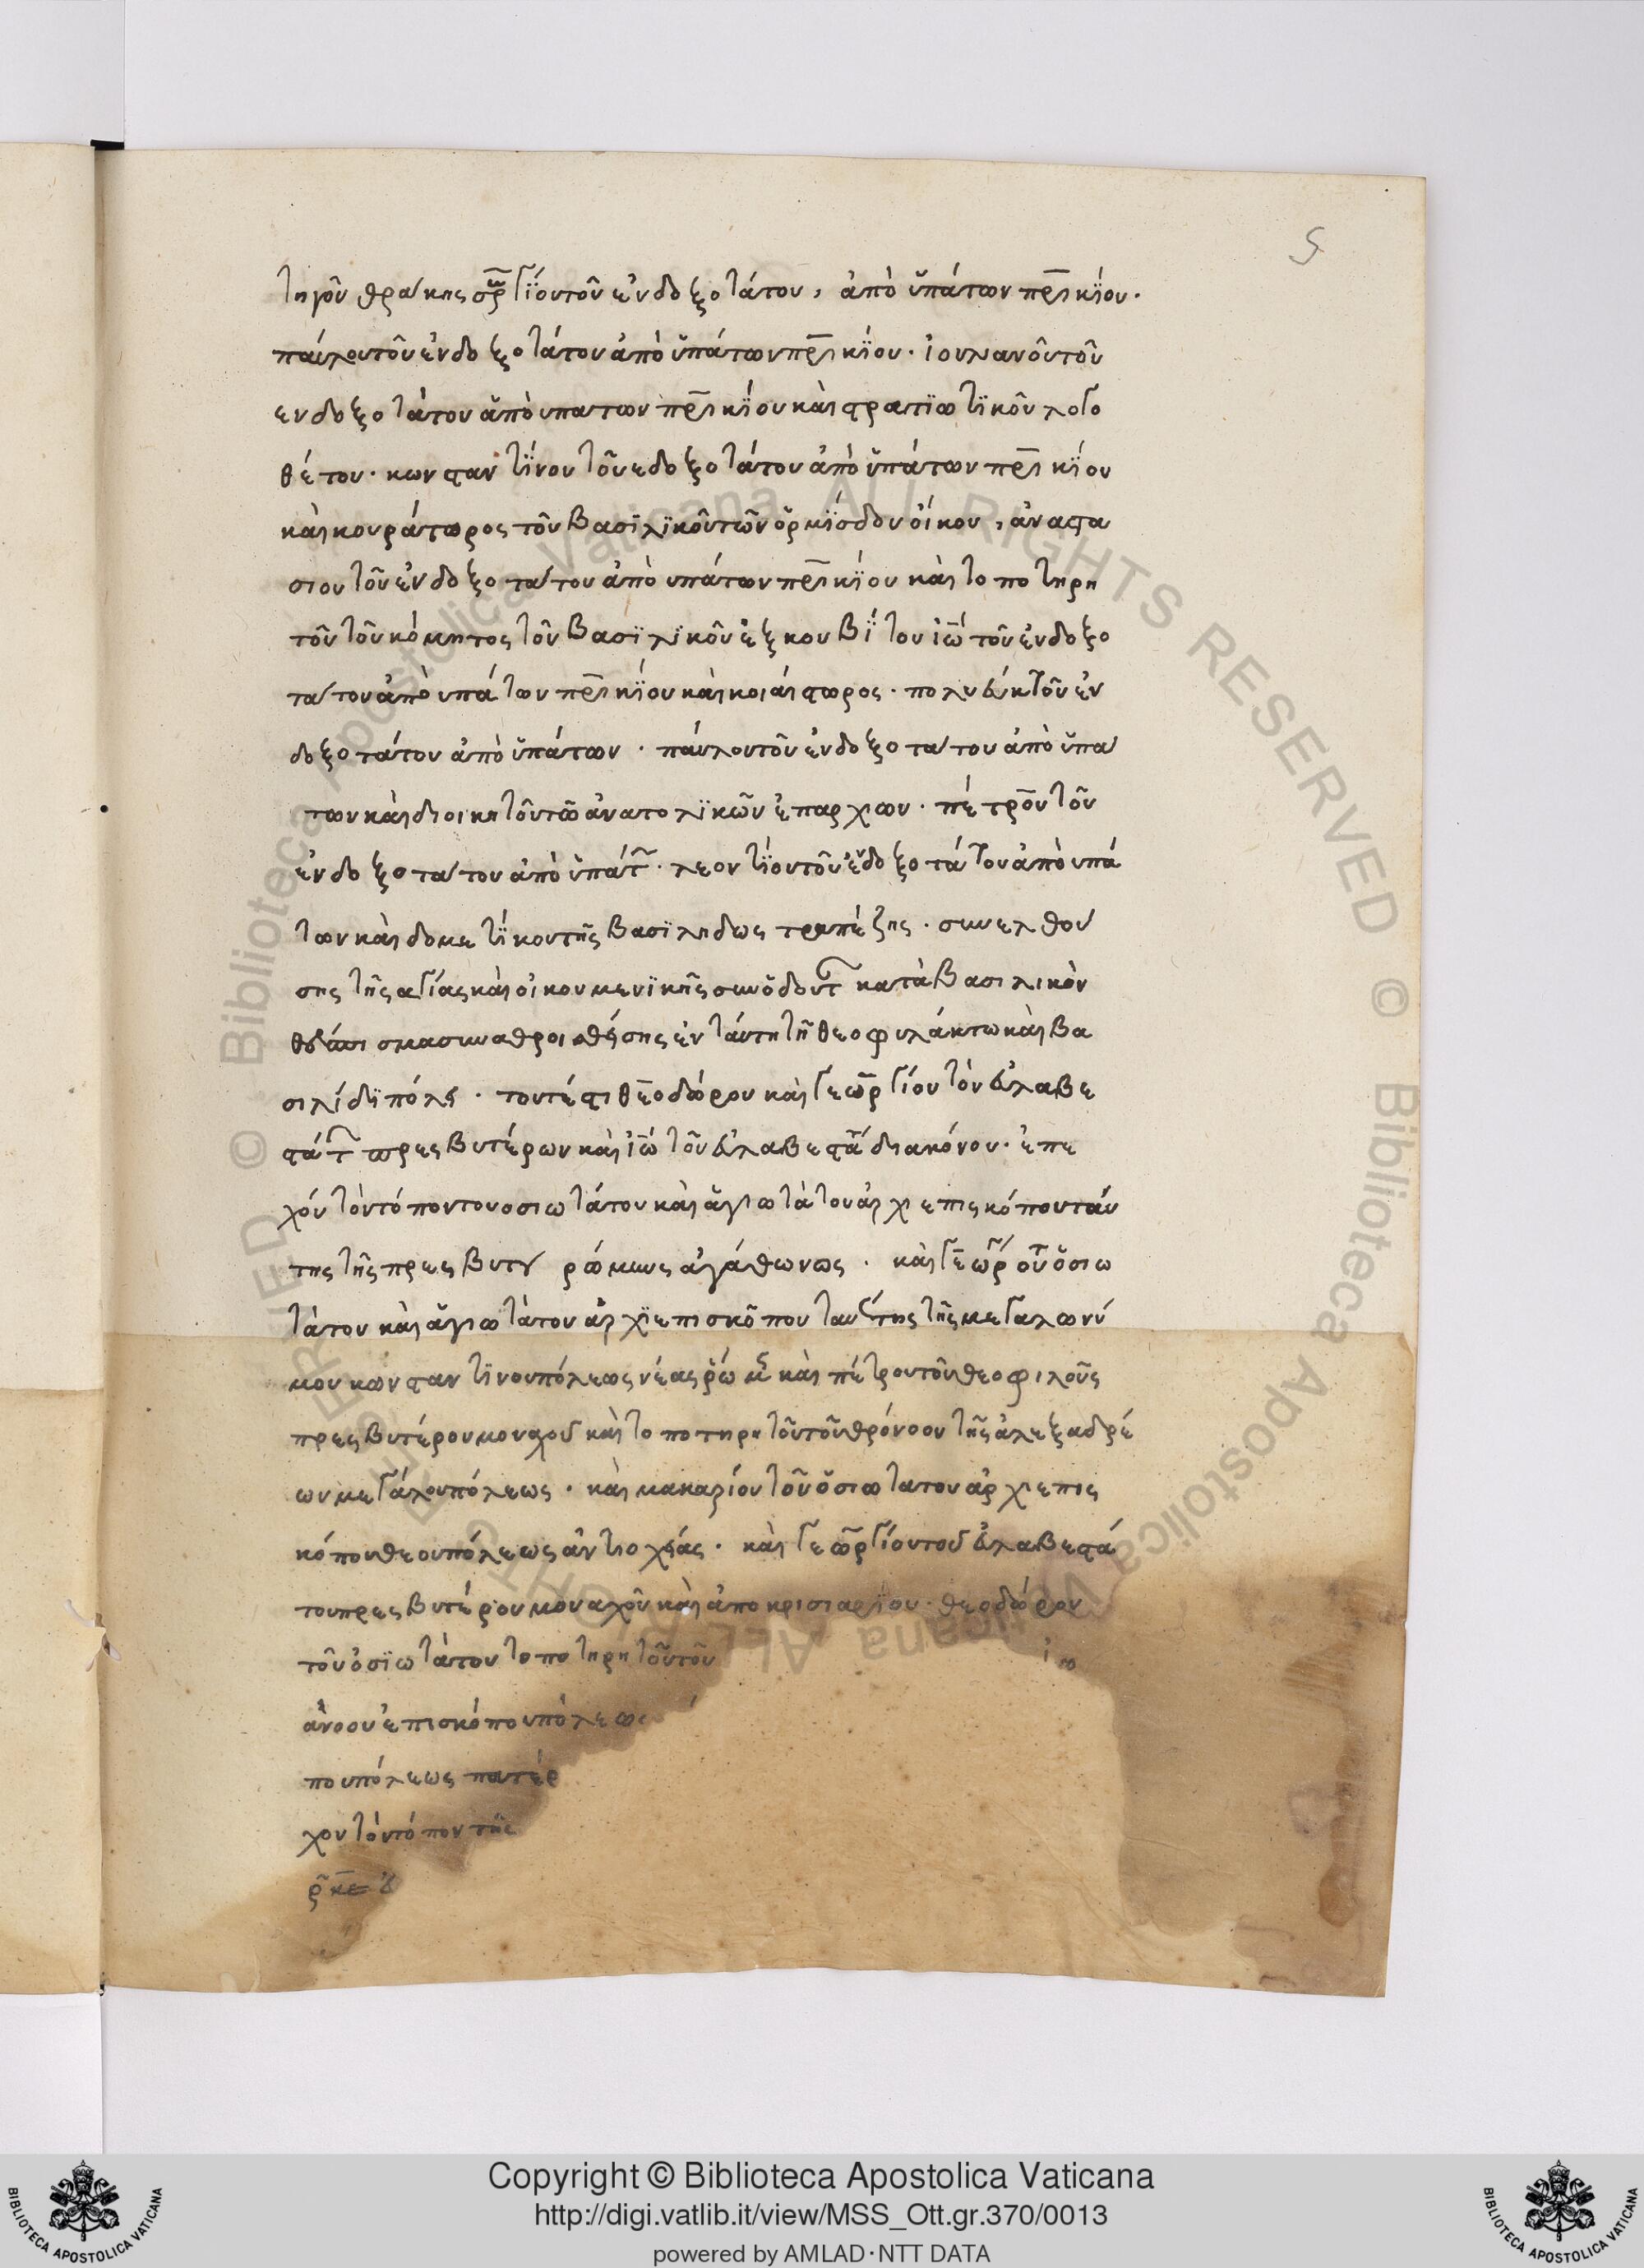 5
τηγοῦ θράκης σεργΐου τοῦ ἐνδοξοτάτου, ἀπὸ ὑπάτων πρικΐου.
παύλου τοῦ ἐνδοξοτάτου ἀπὸ ὑπάτων πρικΐου. ἰουλιανοῦ τοῦ
ενδοξοτάτου ἀπὸ υπατων πρικΐου καὶ στρατϊωτϊκοῦ λογο
θέτου. κωνσταντΐνου τοῦ εδοξοτάτου ἀπὸ ὑπάτων πρικΐου
καὶ κουράτωρος τοῦ βασϊλϊκοῦ τῶν ὁρμΐσδου οἴκου, ἀναστα
σιου τοῦ ἐνδοξοτάτου ἀπὸ υπάτων πρικΐου καὶ τοποτηρη
τοῦ τοῦ κόμητος τοῦ βασϊλϊκοῦ ἐξκουβΐτου ἰῶ τοῦ ἐνδοξο
τάτου ἀπὸ υπάτων πρικΐου καὶ κοιάιστωρος. πολυεύκτου τοῦ ἐν
δοξοτάτου ἀπὸ ὑπάτων. παύλου τοῦ ἐνδοξοτάτου ἀπὸ ὑπα
των καὶ διοικητοῦ τῶ ἀνατολϊκῶν ἐπαρχιων. πέτρου τοῦ
ἐνδοξοτάτου ἀπὸ ὑπάτ. λεοντΐου τοῦ ἐδοξοτάτου ἀπὸ υπά
των καὶ δομετΐκου τῆς βασϊληδως τραπέζης. συνελθού
σης τῆς αγίας καὶ οἰκουμενϊκῆς συνόδου τ κατὰ βασιλικὸν
σμα συναθροισθείσης ἐν τάυτη τῆ θεοφυλάκτω καὶ βα
σιλίδϊ πόλει. τουτέστι θεοδώρου καὶ γεωργίου τὸν ἐυλαβε
στάτ πρεσβυτέρων καὶ ἰῶ τοῦ ἐυλαβεστά διακόνου. ἐπε
χόν τὸν τόπον του οσιωτάτου καὶ ἁγιωτάτου ἀρχιεπισκόπου τάυ
της τῆς πρεσβυτ ρώμης ἀγάθωνως. καὶ γεωργ οῦ ὁσιω
τάτου καὶ ἁγιωτάτου ἀρχϊεπισκόπου ταύτης τῆς μεγαλωνύ
μου κωνσταντϊνουπόλεως νέας ῥώμ καὶ πέτρου τοῦ θεοφιλοῦς
πρεσβυτέρου μοναχοῦ καὶ τοποτηρητοῦ τοῦ θρόνοου τῆς ἀλεξαδρέ
ων μεγάλουπόλεως. καὶ μακαρίου τοῦ ὁσιωτατου ἀρχιεπισ
κόπου θεουπόλεως ἀντιοχείας. καὶ γεωργίου τοῦ ἐυλαβεστά
του πρεσβυτέρου μοναχοῦ καὶ ἀποκρισιαρΐου. θεοδώρου
τοῦ ὁσϊωτάτου τοποτηρητοῦ τοῦ ἰω
ἀνοου ἐπισκόπου πόλεως
που πόλεως πατέρ
χον τὸν τόπον τῆς
Copyright © Biblioteca Apostolica Vaticana
http://digi.vatlib.it/view/MSS_Ott.gr.370/0013
powered by AMLAD·NTT DATA
BIBLIOTECA APOSTOLICA VATICANA
BIBLIOTECA APOSTOLICA VATICANA
© Biblioteca Apostolica Vaticana ALL RIGHTS RESERVED
© Biblioteca Apostolica Vaticana ALL RIGHTS RESERVED